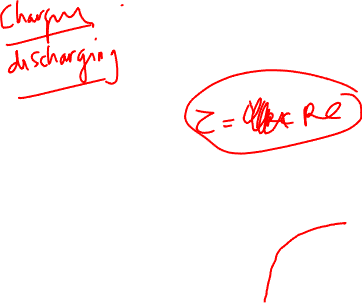 Charging
discharging
τ = RC